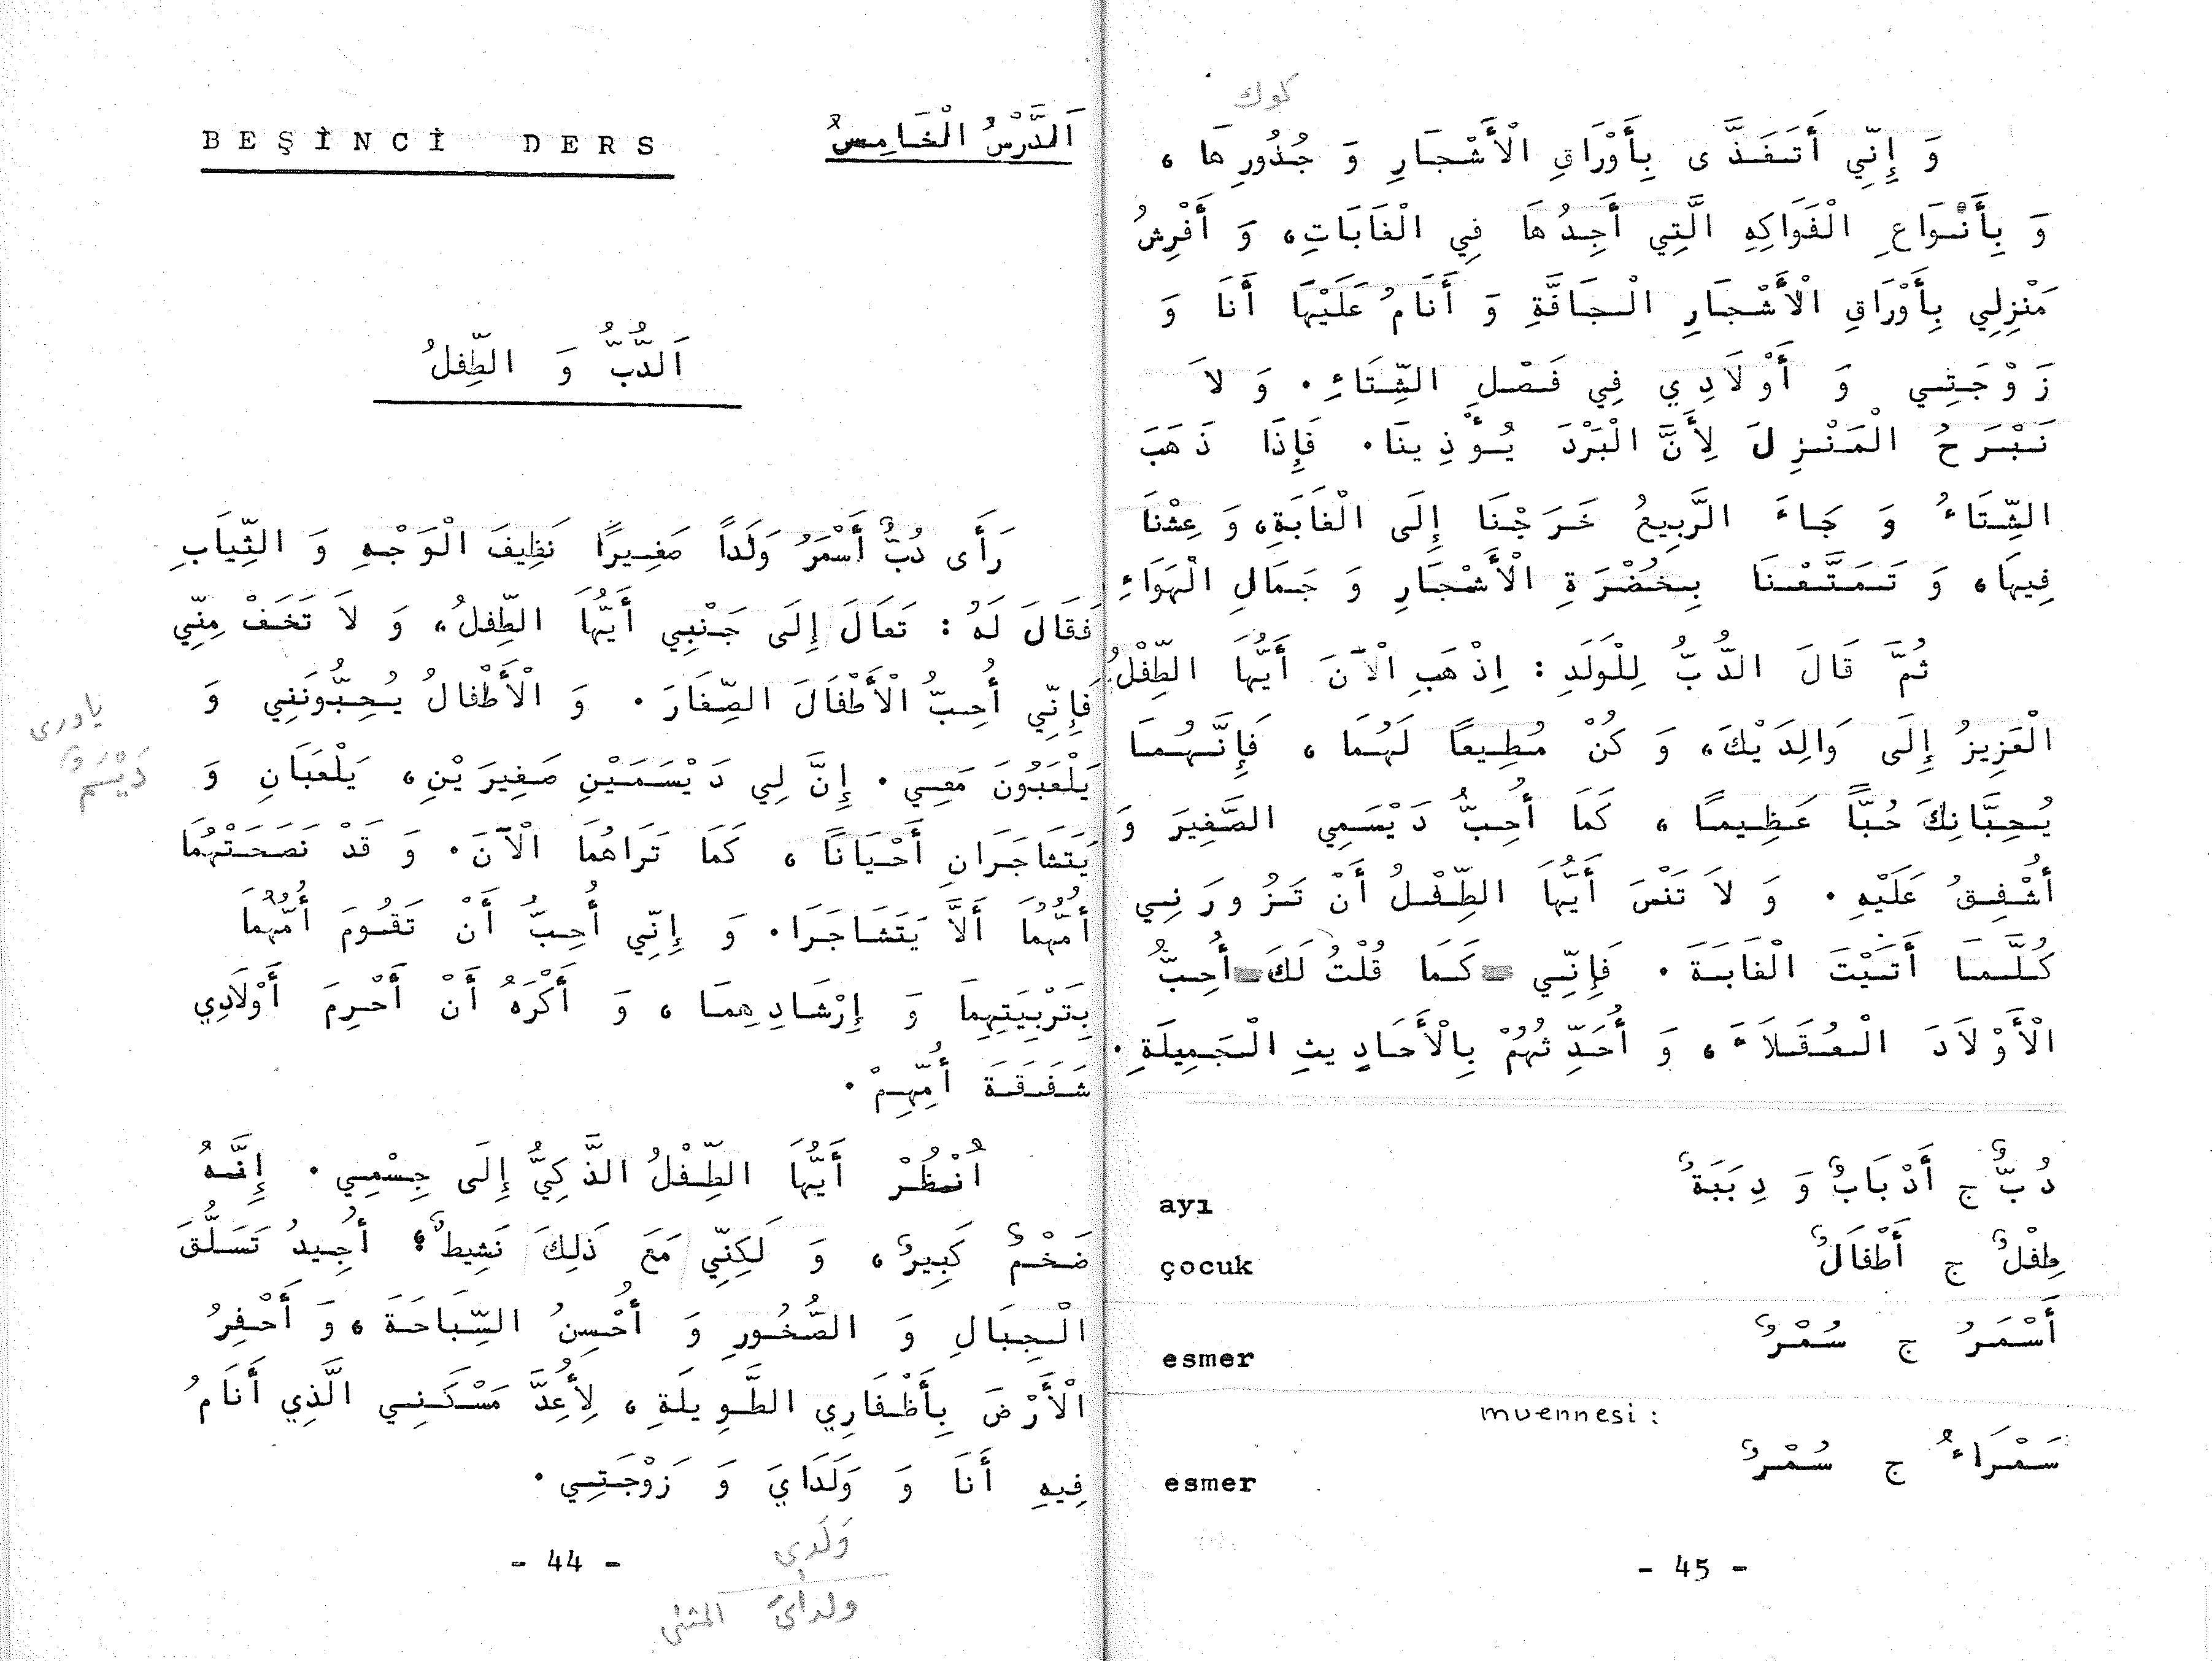 BEŞİNCİ DERS
اَلدَّرْسُ الْخَامِسُ
اَلدُّبُّ وَ الطِّفلُ
رَأَى دُبٌّ أَسْمَرُ وَلَداً صَغِيرًا نَظِيفَ الْوَجْهِ وَ الثِّيَابِ
فَقَالَ لَهُ : تَعَالَ إِلَى جَنْبِي أَيُّهَا الطِّفلُ، وَ لاَ تَخَفْ مِنِّي
فَإِنِّي أُحِبُّ الْأَطْفَالَ الصِّغَارَ . وَ الْأَطْفالُ يُحِبُّونَنِي وَ
يَلْعَبُونَ مَعِي . إِنَّ لِي دَيْسَمَيْنِ صَغِيرَيْنِ، يَلْعَبَانِ وَ
يَتَشَاجَرَانِ أَحْيَانًا ، كَمَا تَرَاهُمَا الْآنَ. وَ قَدْ نَصَحَتْهُمَا
أُمُّهُمَا أَلاَّ يَتَشَاجَرَا. وَ إِنِّي أُحِبُّ أَنْ تَقُومَ أُمُّهُمَا
بِتَرْبِيَتِهِمَا وَ إِرْشَادِهِمَا ، وَ أَكْرَهُ أَنْ أَحْرِمَ أَوْلَادِي
شَفَقَةَ أُمِّهِمْ .
اُنْظُرْ أَيُّهَا الطِّفْلُ الذَّكِيُّ إِلَى جِسْمِي . إِنَّهُ
ضَخْمٌ كَبِيرٌ، وَ لَكِنِّي مَعَ ذَلِكَ نَشِيطٌ؛ أُجِيدُ تَسَلُّقَ
الْجِبَالِ وَ الصُّخُورِ وَ أُحْسِنُ السِّبَاحَةَ ، وَ أَحْفِرُ
الْأَرْضَ بِأَظْفَارِي الطَّوِيلَةِ ، لِأُعِدَّ مَسْكَنِي الَّذِي أَنَامُ
فِيهِ أَنَا وَ وَلَدَايَ وَ زَوْجَتِي .
ياورى
دَيْسَمٌ
- 44 -
وَلَدِى
ولداىَ المثنى
كوك
وَ إِنِّي أَتَغَذَّى بِأَوْرَاقِ الْأَشْجَارِ وَ جُذُورِهَا ،
وَ بِأَنْوَاعِ الْفَوَاكِهِ الَّتِي أَجِدُهَا فِي الْغَابَاتِ، وَ أَفْرِشُ
مَنْزِلِي بِأَوْرَاقِ الْأَشْجَارِ الْجَافَّةِ وَ أَنَامُ عَلَيْهَا أَنَا وَ
زَوْجَتِي وَ أَوْلَادِي فِي فَصْلِ الشِّتَاءِ . وَ لاَ
نَبْرَحُ الْمَنْزِلَ لِأَنَّ الْبَرْدَ يُؤْذِينَا. فَإِذَا ذَهَبَ
الشِّتَاءُ وَ جَاءَ الرَّبِيعُ خَرَجْنَا إِلَى الْغَابَةِ، وَ عِشْنَا
فِيهَا، وَ تَمَتَّعْنَا بِخُضْرَةِ الْأَشْجَارِ وَ جَمَالِ الْهَوَاءِ
ثُمَّ قَالَ الدُّبُّ لِلْوَلَدِ : اِذْهَبِ الْآنَ أَيُّهَا الطِّفْلُ
الْعَزِيزُ إِلَى وَالِدَيْكَ، وَ كُنْ مُطِيعًا لَهُمَا ، فَإِنَّهُمَا
يُحِبَّانِكَ حُبًّا عَظِيمًا ، كَمَا أُحِبُّ دَيْسَمِي الصَّغِيرَ وَ
أُشْفِقُ عَلَيْهِ . وَ لاَ تَنْسَ أَيُّهَا الطِّفْلُ أَنْ تَزُورَنِي
كُلَّمَا أَتَيْتَ الْغَابَةَ . فَإِنِّي - كَمَا قُلْتُ لَكَ - أُحِبُّ
الْأَوْلَادَ الْعُقَلَاءَ ، وَ أُحَدِّثُهُمْ بِالْأَحَادِيثِ الْجَمِيلَةِ .
دُبٌّ ج أَدْبَابٌ وَ دِبَبَةٌ ayı
طِفْلٌ ج أَطْفَالٌ çocuk
أَسْمَرُ ج سُمْرٌ esmer
muennesi :
سَمْرَاءُ ج سُمْرٌ esmer
- 45 -